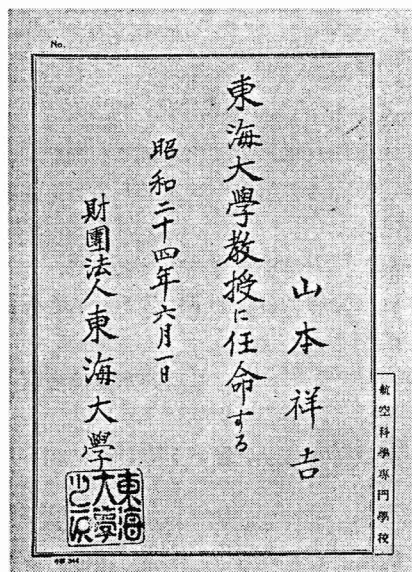 No.
山本祥吉
東海大學教授に任命する
昭和二十四年六月一日
財團法人東海大學
東海大學之印
航空科學專門學校